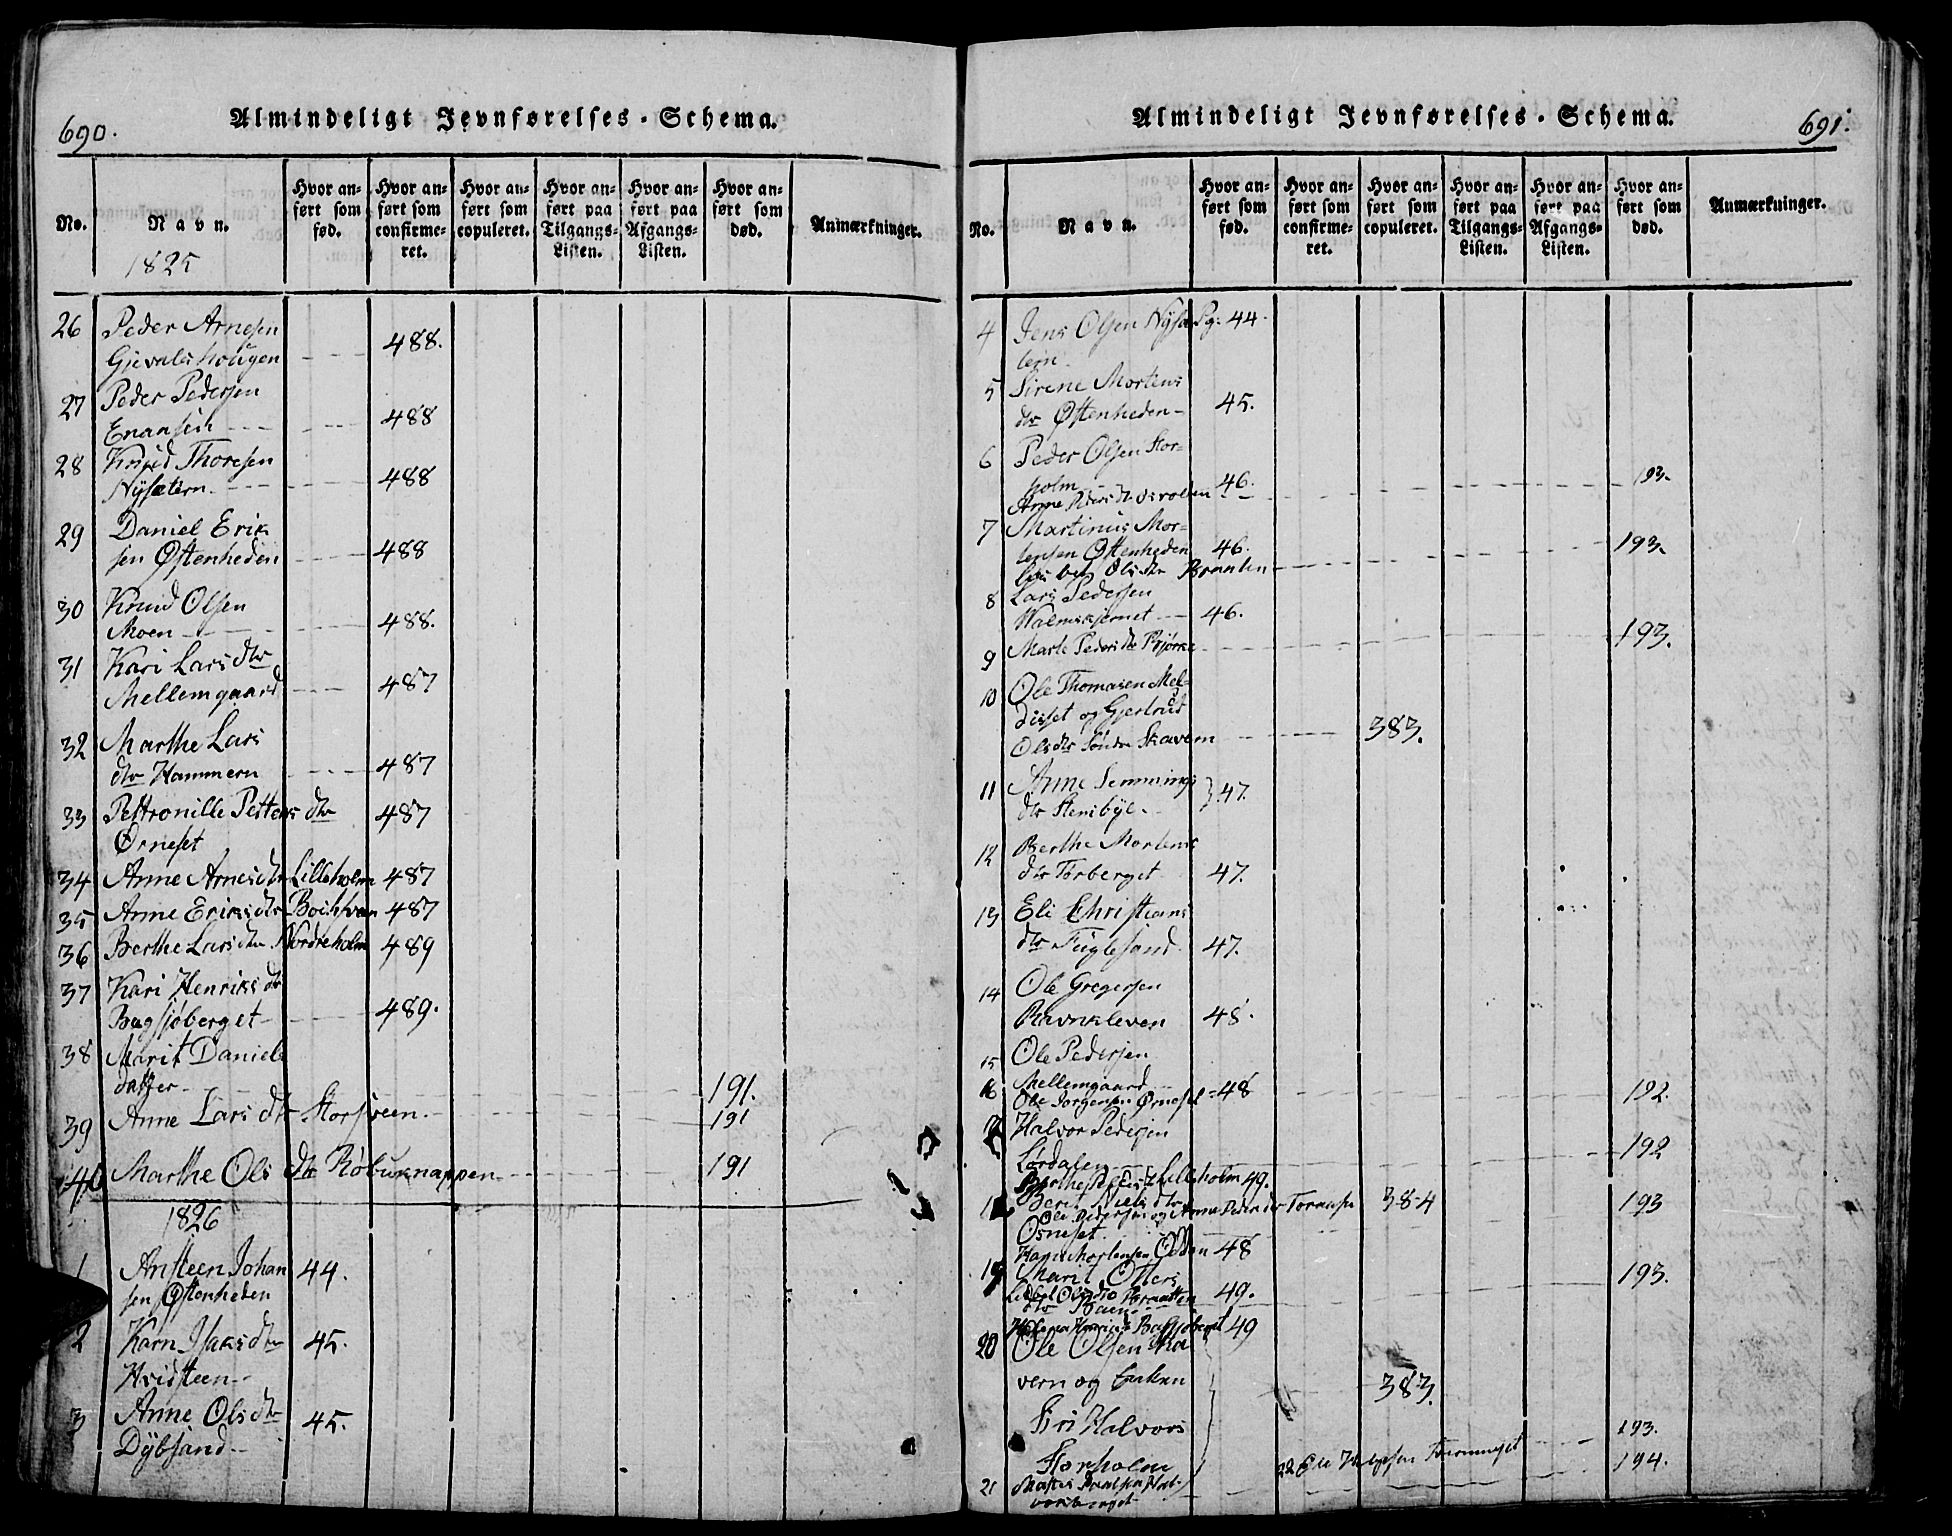 690.
Almindeligt Jevnførelses-Schema.
No.
Navn.
Hvor an-
ført som
fød.
Hvor an-
ført som
confirme-
ret.
Hvor an-
ført som
copuleret.
Hvor an-
ført paa
Tilgangs-
Listen.
Hvor an-
ført paa
Afgangs-
Listen.
Hvor an-
ført som
død.
Anmærkninger.
1825
26 Peder Arnesen
Gjevaldshougen 488.
27 Peder Pedersen
488
28 Knud Thoresen
Nÿsætern 488
29 Daniel Erik
sen Østenheden 488
30 Knud Olsen
Moen 488.
31 Kari Lars dtr
Mellemgaard 487
32 Marthe Lars
dtr Hammern 487
33 Pettronille Petters dtr 487
Ørneset
34 Anne Arnes dtr Lilleholm 487
35 Anne Eriks dtr 487
36 Berthe Lars dtr Nordreholm 489
37 Kari Henriks dtr
Bagsjøberget 489.
38 Marit Daniels
datter 191.
39 Anne Lars dtr 191
40 Marthe Ols dtr Røbuknappen 191
1826
1 Ansteen Johan 44.
sen Østenheden
2 Karn Isaks dtr 45.
Hvidsteen
3 Anne Ols dtr 45.
Dÿbsand
691.
Almindeligt Jevnførelses-Schema.
No.
Navn.
Hvor an-
ført som
fød.
Hvor an-
ført som
confirme-
ret.
Hvor an-
ført som
copuleret.
Hvor an-
ført paa
Tilgangs-
Listen.
Hvor an-
ført paa
Afgangs-
Listen.
Hvor an-
ført som
død.
Anmærkninger.
4 Jens Olsen Nÿsæ Pg. 44.
tern
5 Sirene Mortens
dtr Østenheden 45.
6 Peder Olsen Stor-
holm 46. 193.
Anne Peders dtr
7 Martinus Mor-
tensen Østenheden 46. 193.
Ols dtr Braaten
8 Lars Pedersen
46.
9 Marte Peders dtr Bjørke 193.
10 Ole Thomasen Mel-
disset og Gjertrud
Ols dtr Søndre Skavern 383.
11 Anne Semmings
dtr Stensbÿe 47.
12 Berthe Mortens
dtr Torberget 47.
13 Eli Christians
dtr Fuglesand 47.
14 Ole Gregersen
Ravnkleven 48.
15 Ole Pedersen
Mellemgaard
16 Ole Jorgensen Ørneset 48 192.
17 Halvor Pedersen
Lørdalen 192
Lilleholm 49.
Berit Niels dtr 384 193
Ole Pedersen og Anne Peders dtr
Osneset
Hans Mortensen Odden 48
19 Marit Ollers 193.
Ols dtr Braatten 49.
dtr
Bagsjøberget 49
20 Ole Olsen Ska
vern og Enken 383.
Siri Halvors
Storholm 193.
22 Ole 194.
21